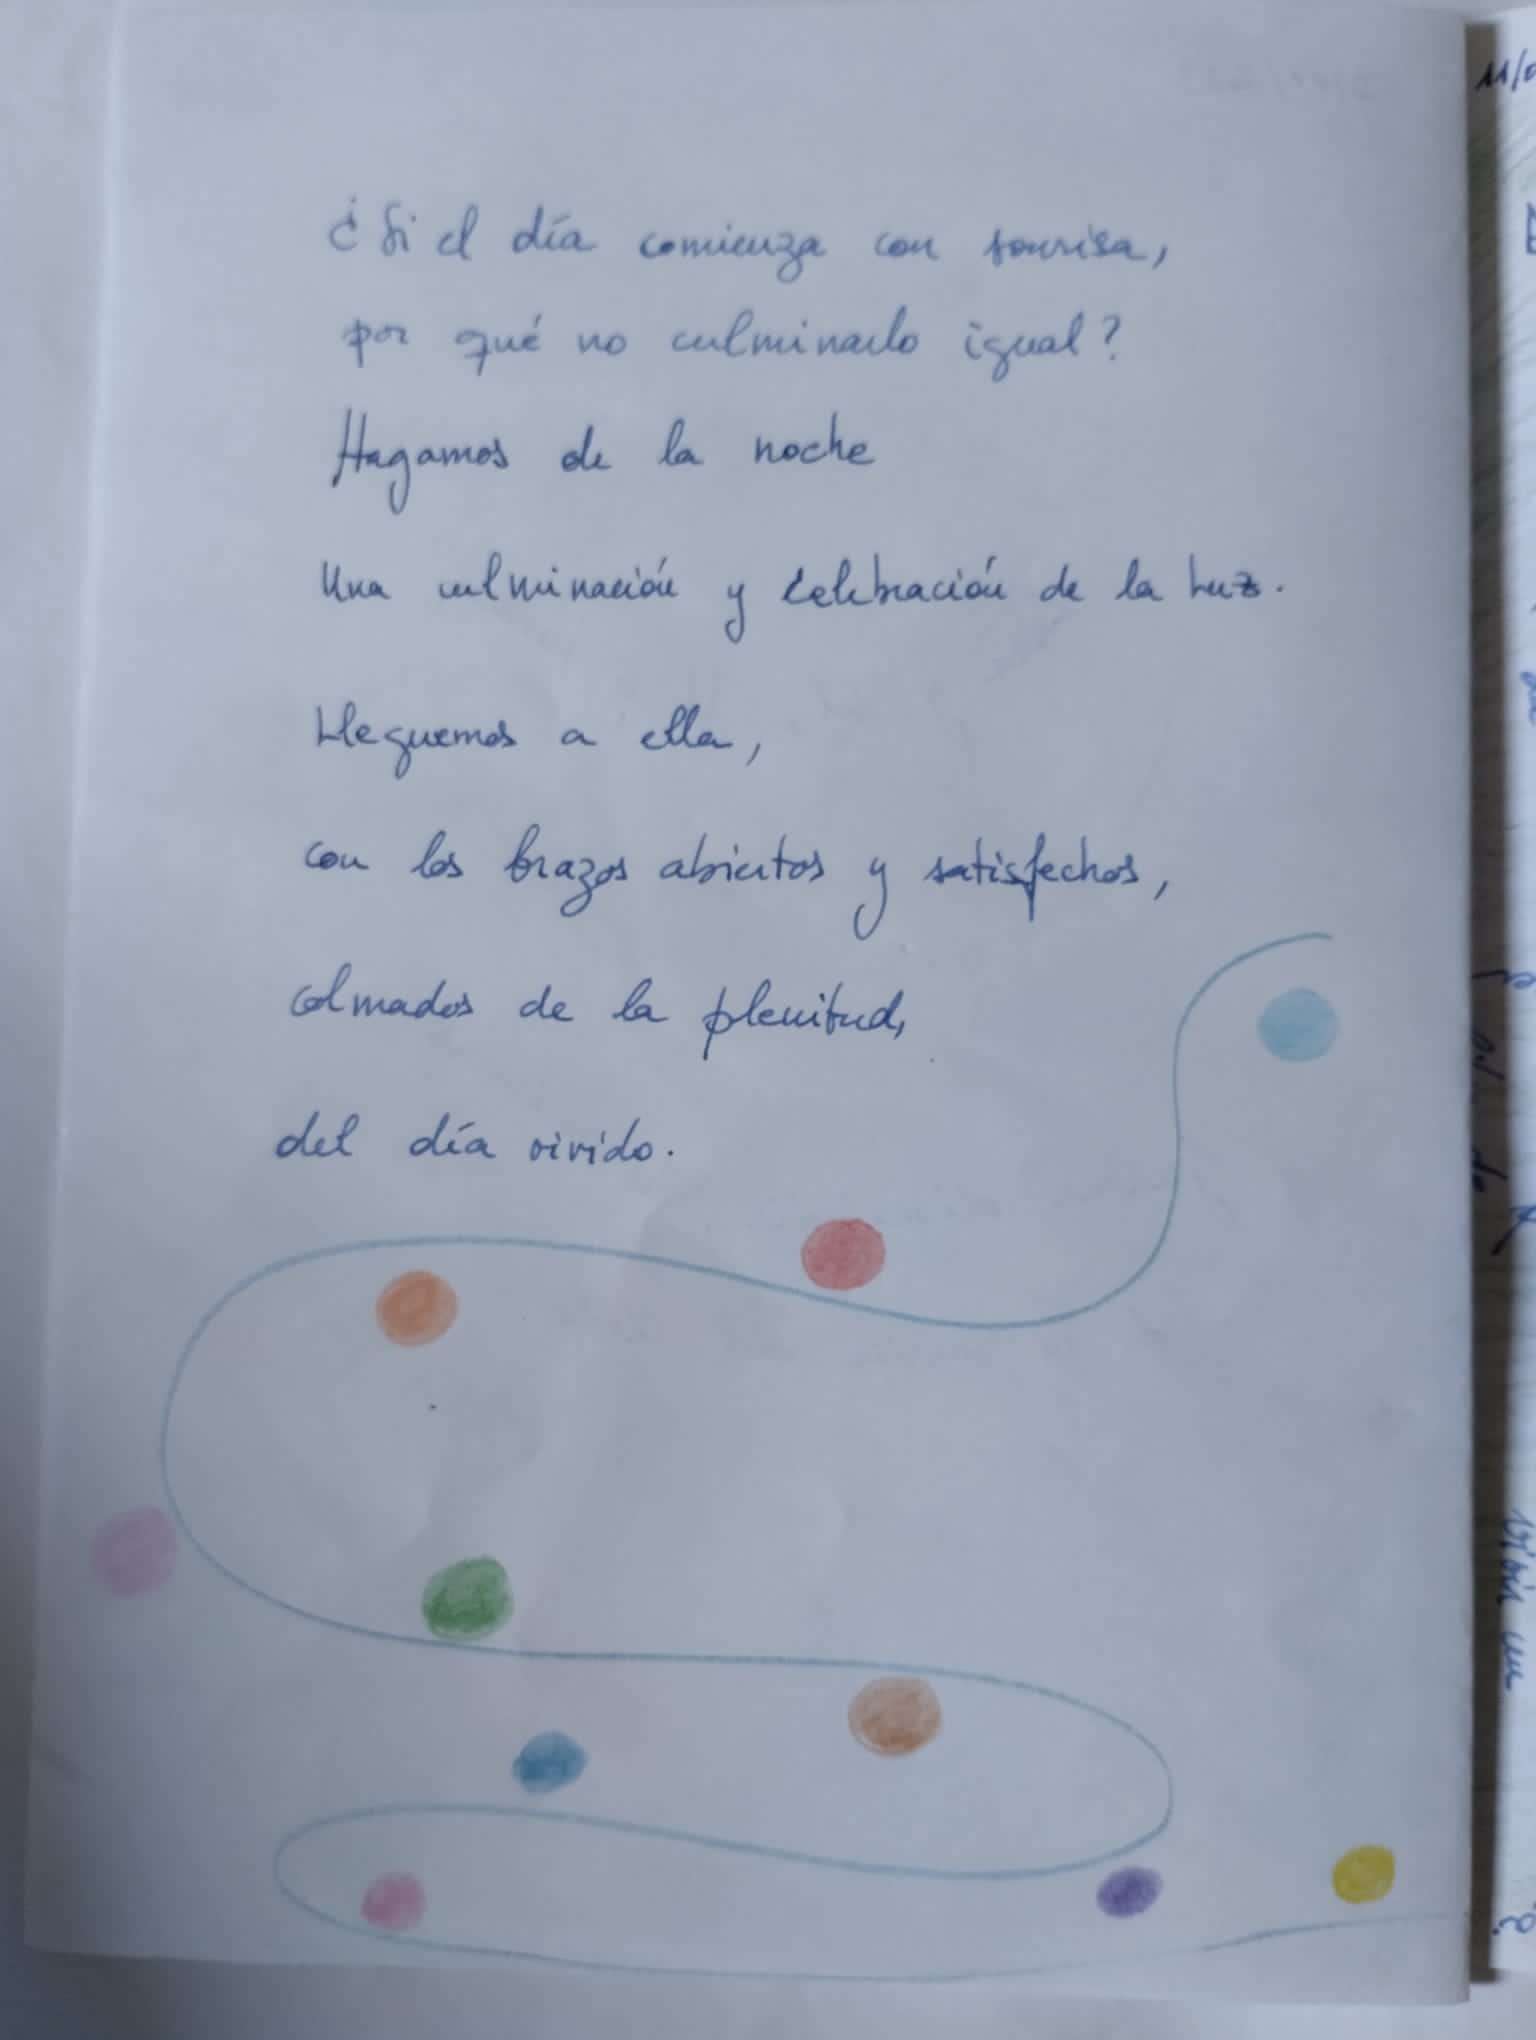 ¿Si el día comienza con sonrisa,
por qué no culminarlo igual?
Hagamos de la noche
Una culminación y celebración de la luz.
Lleguemos a ella,
con los brazos abiertos y satisfechos,
colmados de la plenitud,
del día vivido.